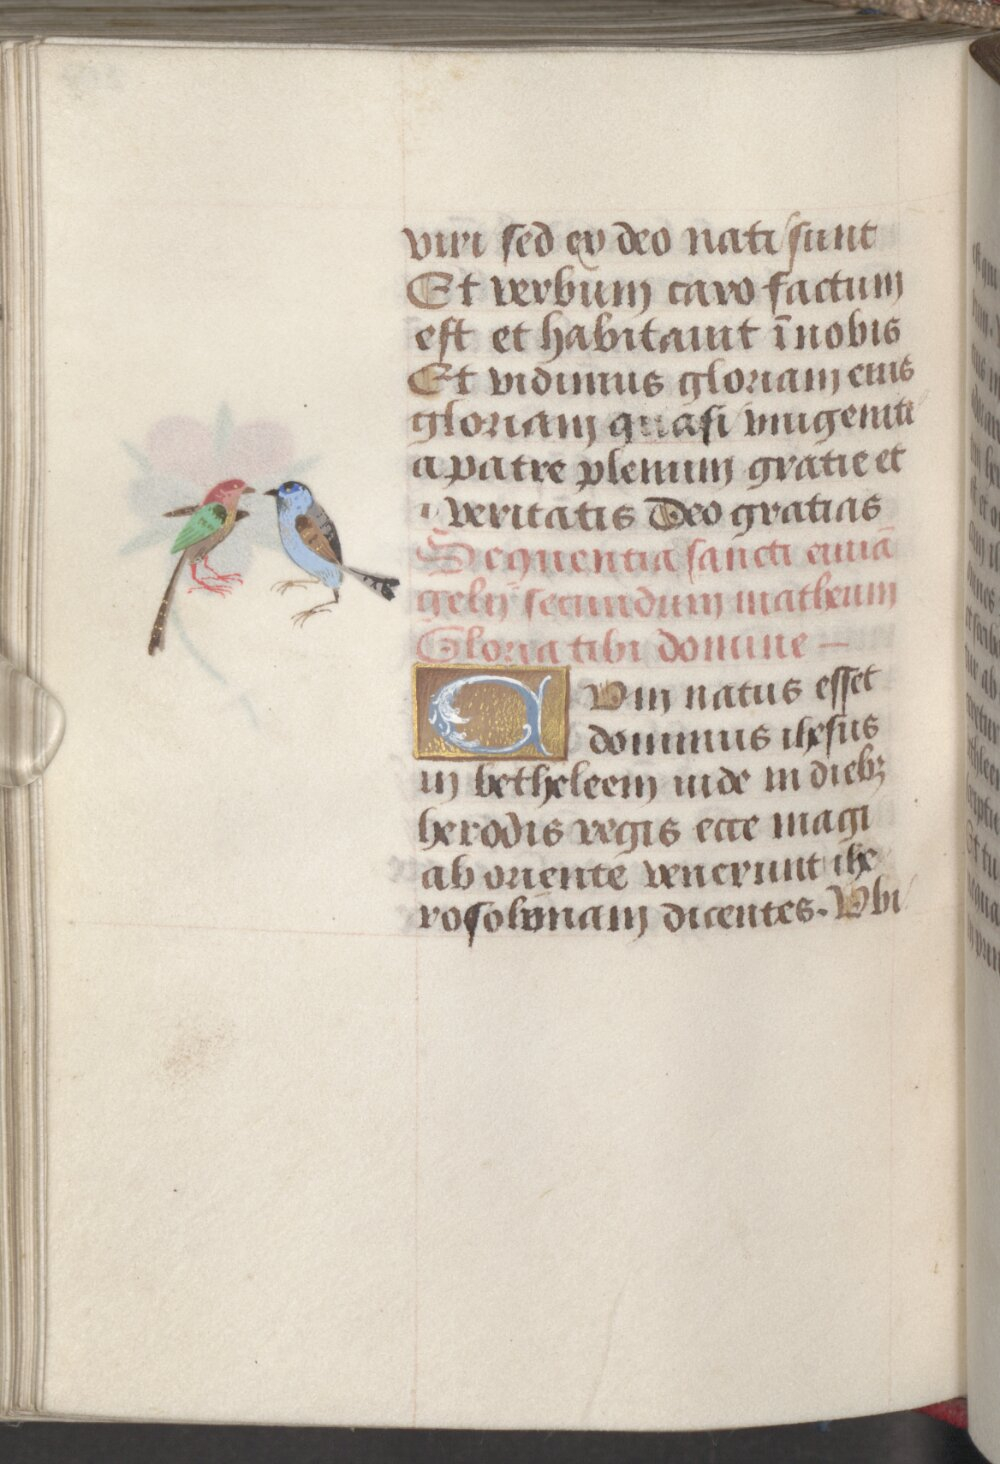 viri sed ex deo nati sunt
Et verbum caro factum
est et habitauit ī nobis
Et vidimus gloriam eius
gloriam quasi vnigeniti
a patre plenum gratie et
veritatis Deo gratias
Sequentia sancti euuā
gelij secundum matheum
Gloria tibi domine
CVm natus esset
dominus ihesus
in betheleem iude in diebꝫ
herodis regis ecce magi
ab oriente venerunt ihe
rosolimam dicentes. Vbi